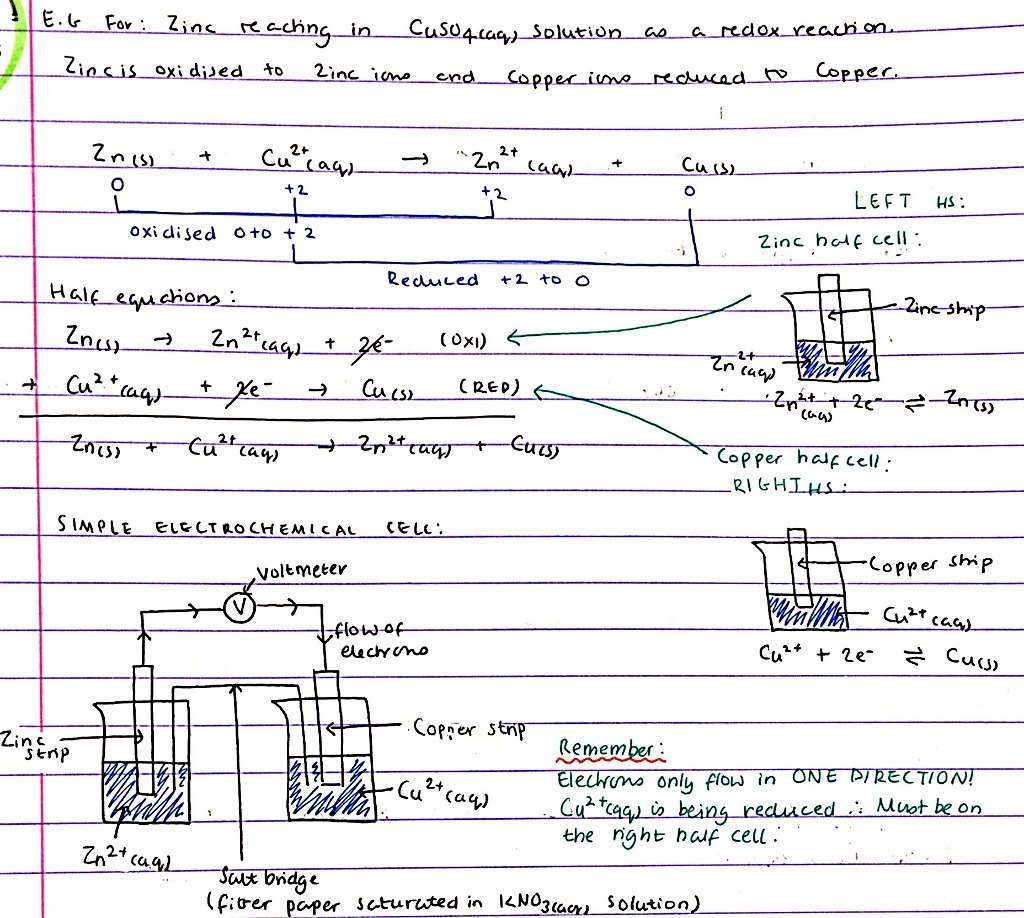 E.G For: Zinc reacting in CuSO4(aq) solution as a redox reaction.
Zinc is oxidised to zinc ions and copper ions reduced to copper.
Zn(s) + Cu²⁺(aq) → Zn²⁺(aq) + Cu(s)
0 +2 +2 0
oxidised 0 to +2
Reduced +2 to 0
LEFT HS:
Zinc half cell:
Zinc strip
Zn²⁺(aq)
Zn²⁺(aq) + 2e⁻ ⇌ Zn(s)
Half equations:
Zn(s) → Zn²⁺(aq) + 2e⁻ (OXI)
+ Cu²⁺(aq) + 2e⁻ → Cu(s) (RED)
Zn(s) + Cu²⁺(aq) → Zn²⁺(aq) + Cu(s)
Copper half cell:
RIGHT HS:
Copper strip
Cu²⁺(aq)
Cu²⁺ + 2e⁻ ⇌ Cu(s)
SIMPLE ELECTROCHEMICAL CELL:
Voltmeter
V
flow of
electrons
Zinc
strip
Copper strip
Cu²⁺(aq)
Zn²⁺(aq)
Salt bridge
(filter paper saturated in KNO3(aq) solution)
Remember:
Electrons only flow in ONE DIRECTION!
Cu²⁺(aq) is being reduced ∴ Must be on
the right half cell.